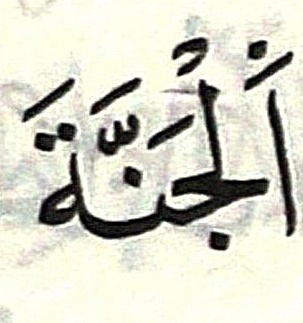 اَلْجَنَّةَ